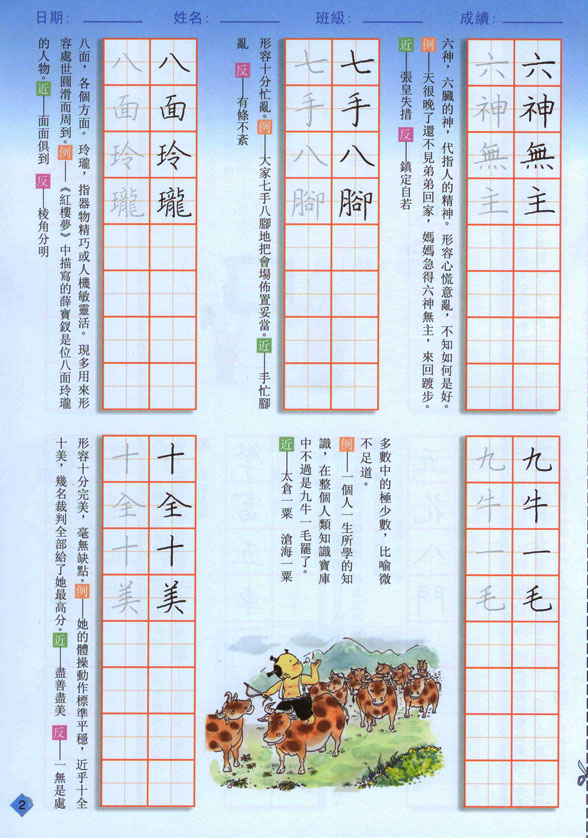 日期：
姓名：
班級：
成績：
六神無主
六神無主
六神，六臟的神，代指人的精神。形容心慌意亂，不知如何是好。
例——天很晚了還不見弟弟回家，媽媽急得六神無主，來回踱步。
近——張皇失措 反——鎮定自若
七手八腳
七手八腳
形容十分忙亂。例——大家七手八腳地把會場佈置妥當。近——手忙腳
亂 反——有條不紊
八面玲瓏
八面玲瓏
八面，各個方面。玲瓏，指器物精巧或人機敏靈活。現多用來形
容處世圓滑而周到。例——《紅樓夢》中描寫的薛寶釵是位八面玲瓏
的人物。近——面面俱到 反——棱角分明
九牛一毛
九牛一毛
多數中的極少數，比喻微
不足道。
例——一個人一生所學的知
識，在整個人類知識寶庫
中不過是九牛一毛罷了。
近——太倉一粟 滄海一粟
十全十美
十全十美
形容十分完美，毫無缺點。例——她的體操動作標準平穩，近乎十全
十美，幾名裁判全部給了她最高分。近——盡善盡美 反——一無是處
2